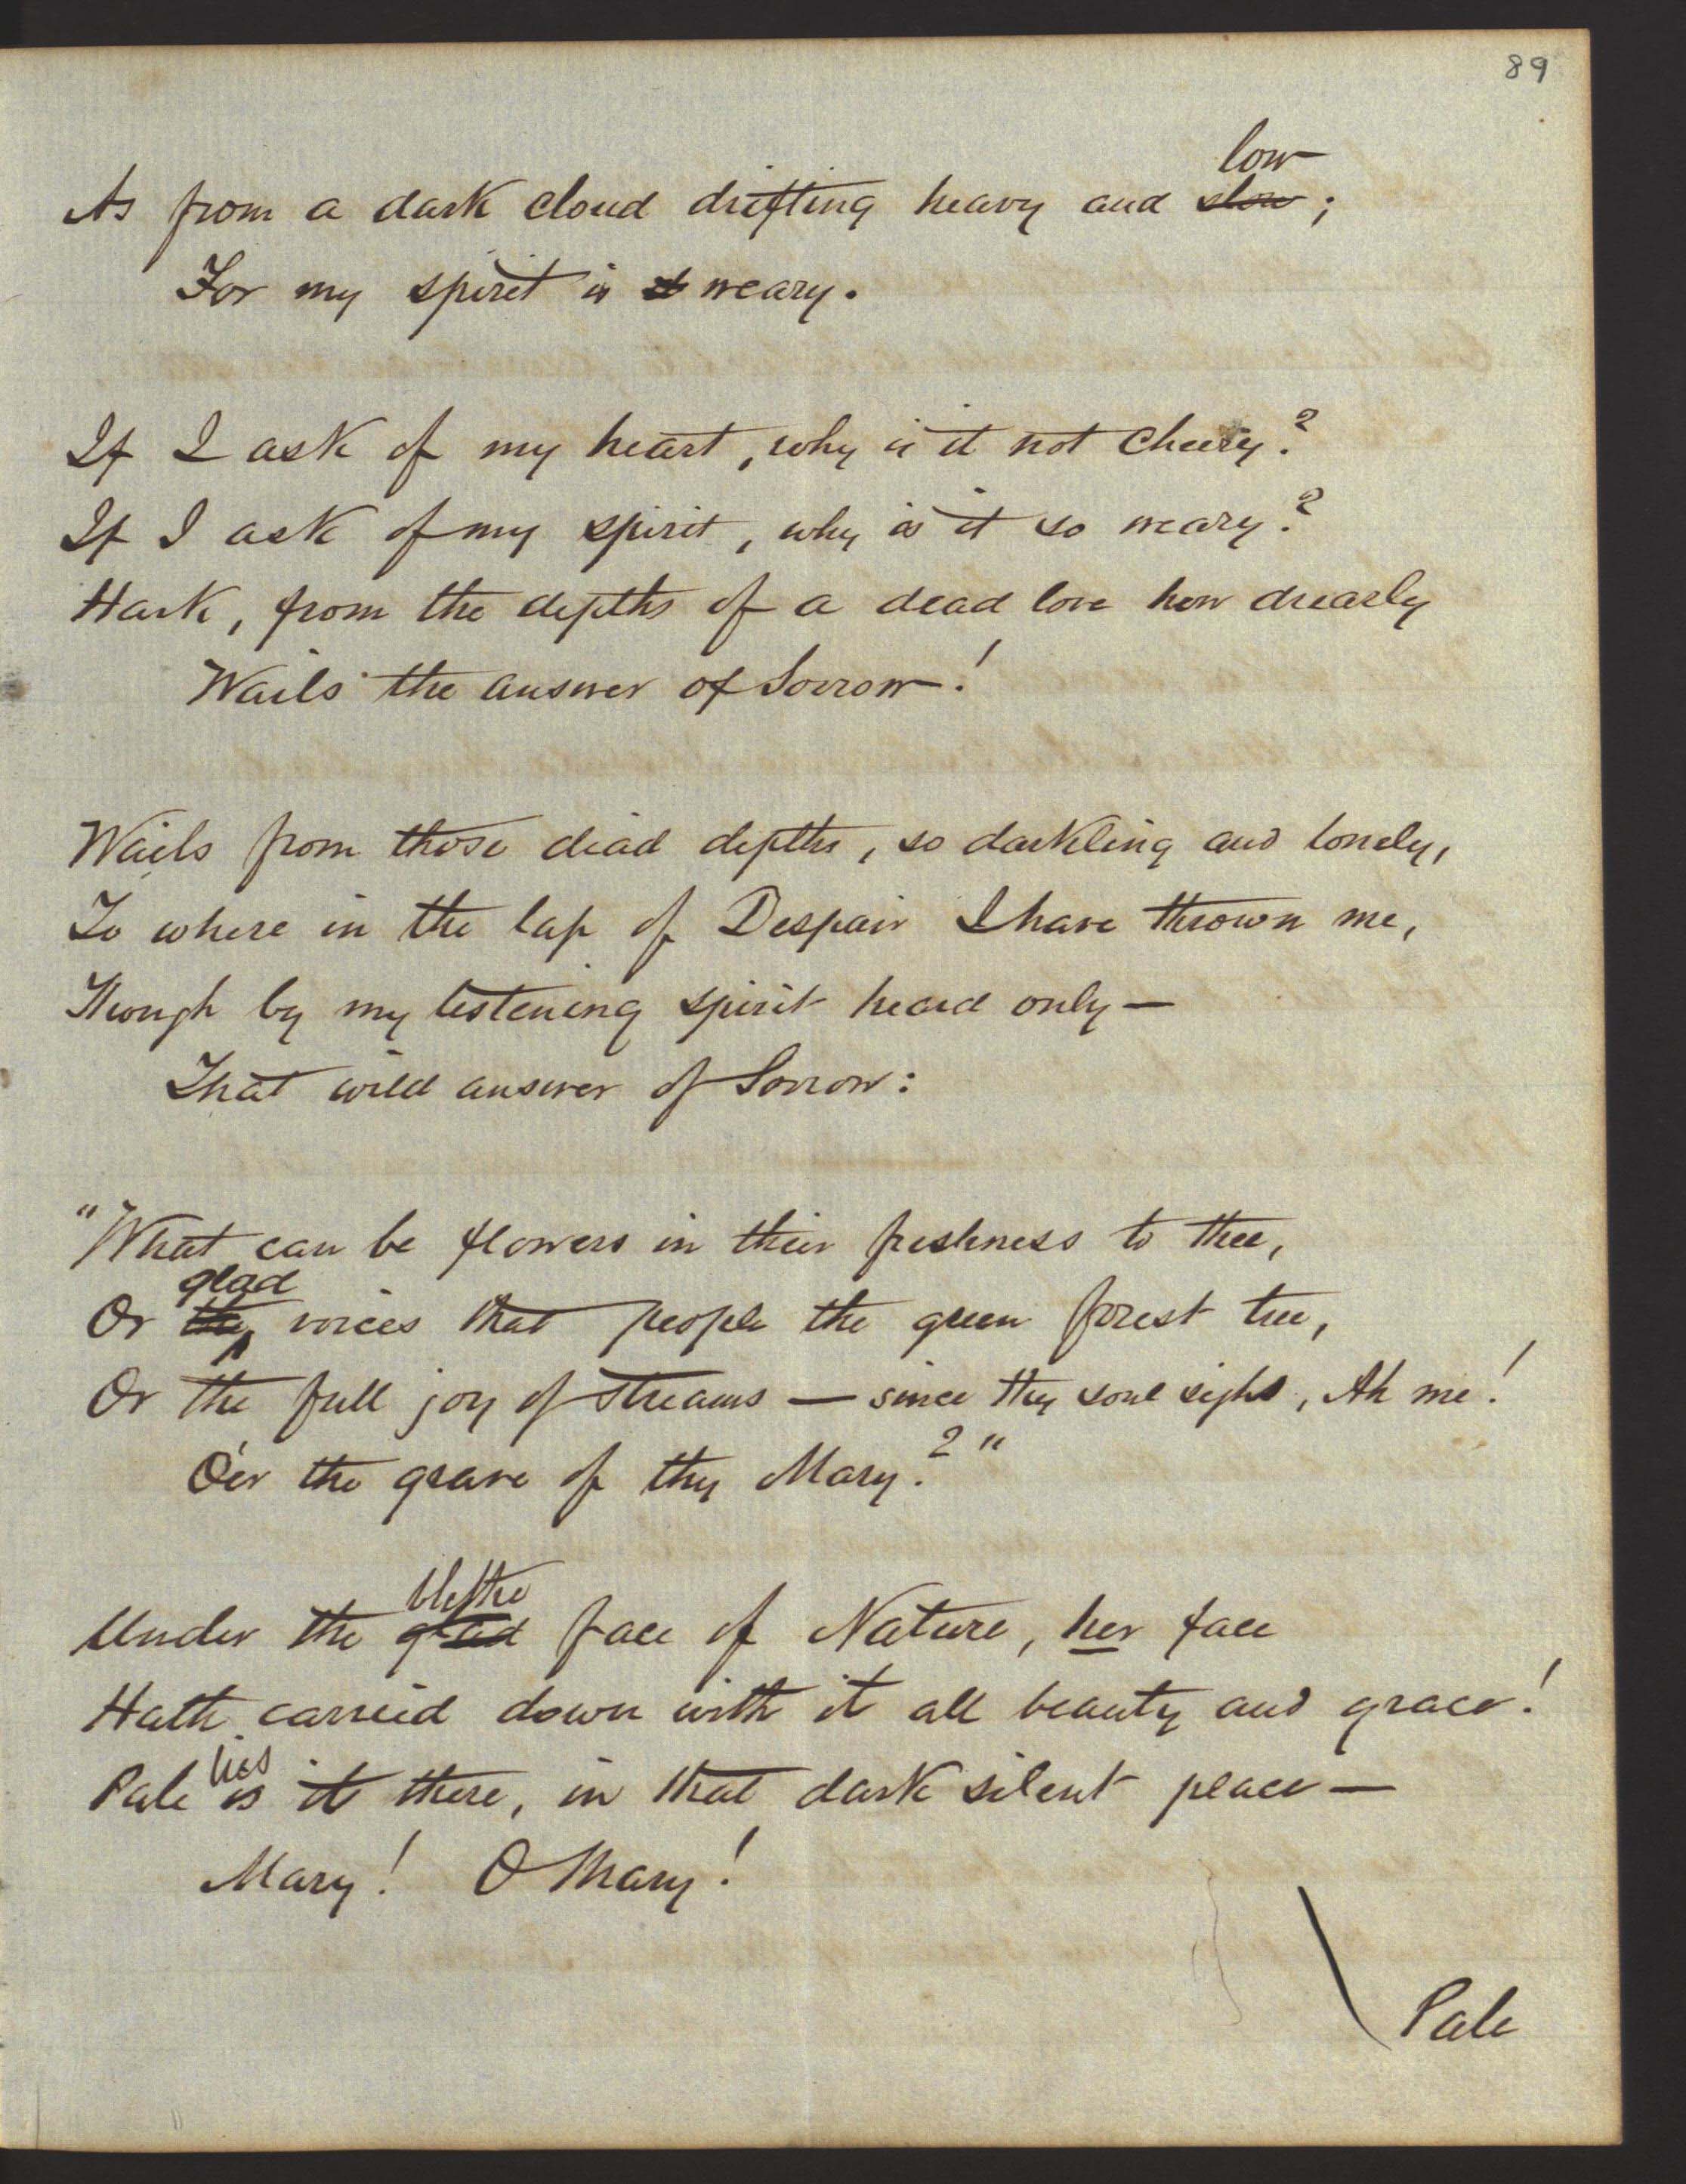 89
As from a dark cloud drifting heavy and low slow;
For my spirit is weary.
If I ask of my heart, why is it not cheery?
If I ask of my spirit, why is it so weary?
Hark, from the depths of a dead love how drearly
Wails the answer of Sorrow!
Wails from those dead depths, so darkling and lonely,
To where in the lap of Despair I have thrown me,
Though by my listening spirit heard only—
That wild answer of Sorrow:
"What can be flowers in their freshness to thee,
glad
Or the voices that people the green forest tree,
Or the full joy of streams — since thy soul sighs, Ah me!
O'er the grave of thy Mary?"
blithe
Under the glad face of Nature, her face
Hath carried down with it all beauty and grace!
lies
Pale is it there, in that dark silent place—
Mary! O Mary!
Pale